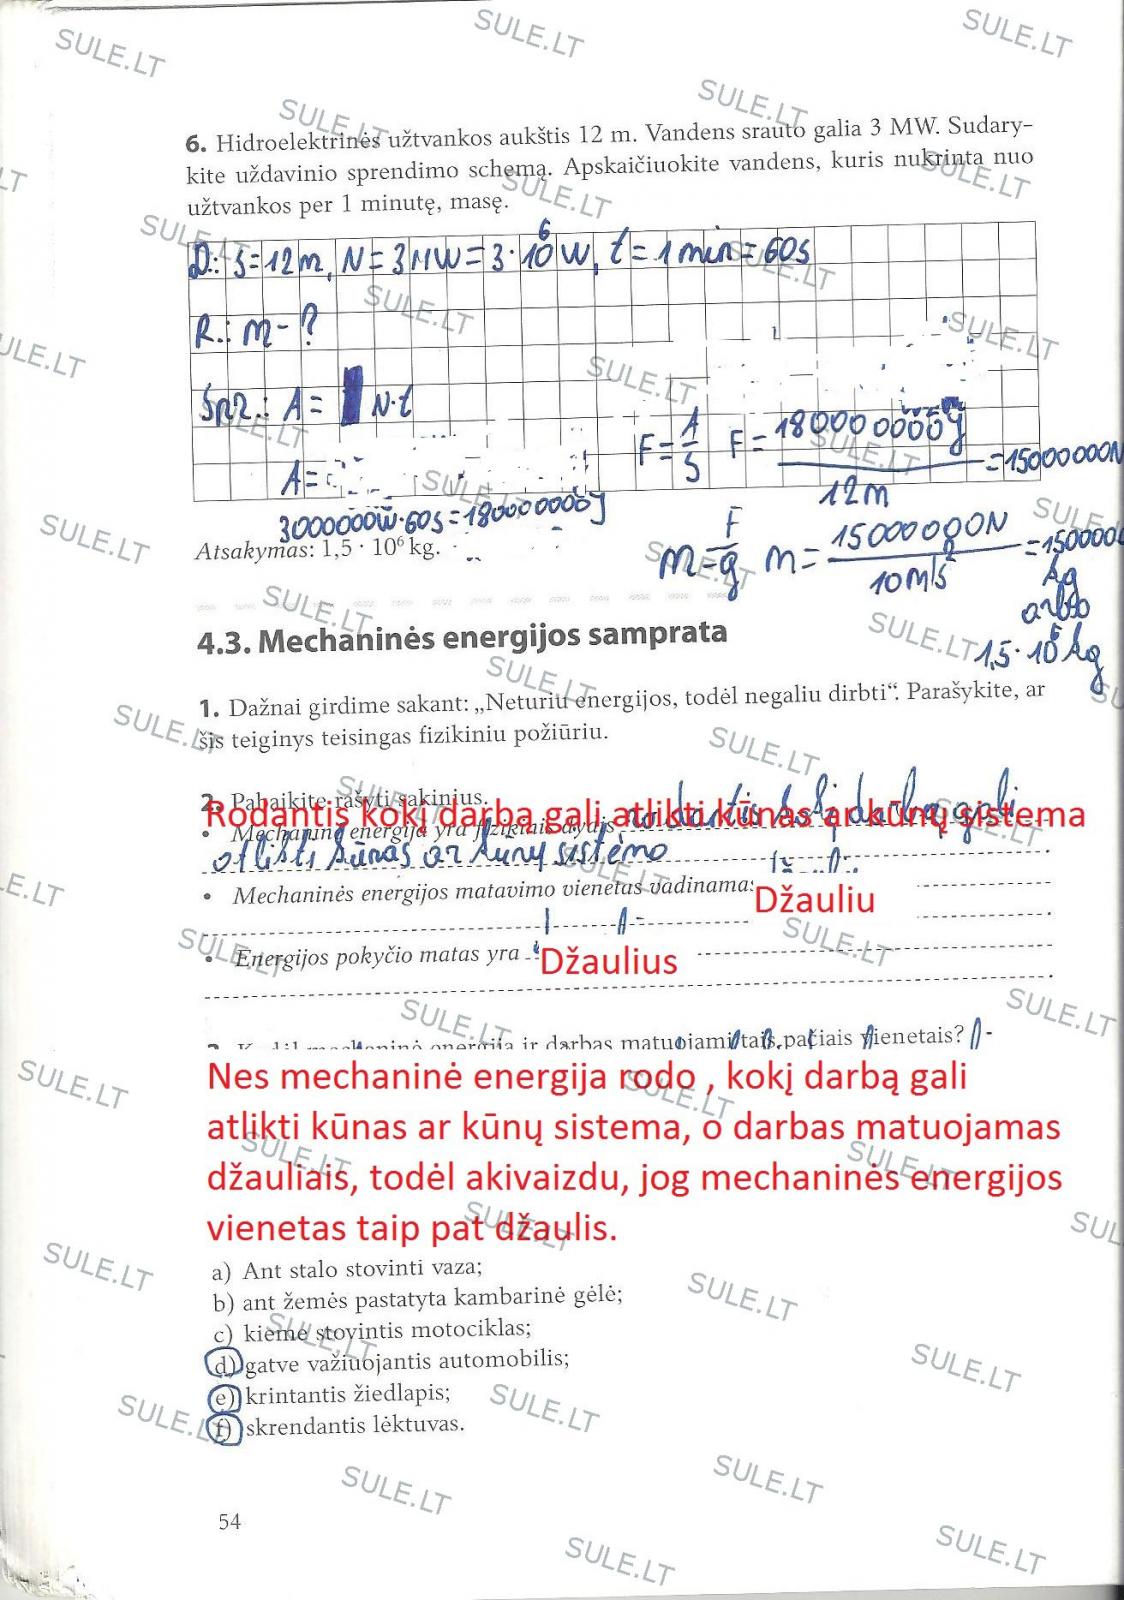 6. Hidroelektrinės užtvankos aukštis 12 m. Vandens srauto galia 3 MW. Sudary-
kite uždavinio sprendimo schemą. Apskaičiuokite vandens, kuris nukrinta nuo
užtvankos per 1 minutę, masę.
D.: s=12m, N=3MW=3·10⁶W, t=1min=60s
R.: m-?
Spr.: A= N·t
F=A/s F=180000000J/12m=15000000N
A=
3000000W·60s=180000000J
Atsakymas: 1,5 · 10⁶ kg.
m=F/g m=15000000N/10m/s²=150000
kg
arba
1,5·10⁶kg
4.3. Mechaninės energijos samprata
1. Dažnai girdime sakant: „Neturiu energijos, todėl negaliu dirbti“. Parašykite, ar
šis teiginys teisingas fizikiniu požiūriu.
2. Pabaikite rašyti sakinius.
Rodantis kokį darbą gali atlikti kūnas ar kūnų sistema
• Mechaninė energija yra fizikinis dydis rodantis kokį darbą gali
atlikti kūnas ar kūnų sistema
• Mechaninės energijos matavimo vienetas vadinamas
Džauliu
• Energijos pokyčio matas yra
Džaulius
mechaninė energija ir darbas matuojami tais pačiais vienetais?
Nes mechaninė energija rodo , kokį darbą gali
atlikti kūnas ar kūnų sistema, o darbas matuojamas
džauliais, todėl akivaizdu, jog mechaninės energijos
vienetas taip pat džaulis.
a) Ant stalo stovinti vaza;
b) ant žemės pastatyta kambarinė gėlė;
c) kieme stovintis motociklas;
d) gatve važiuojantis automobilis;
e) krintantis žiedlapis;
f) skrendantis lėktuvas.
54
SULE.LT